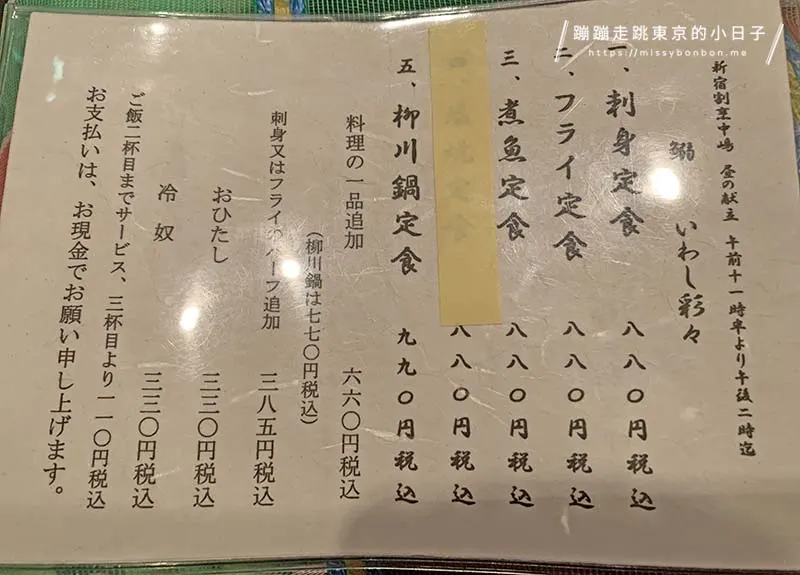 蹦蹦走跳東京的小日子
https://missybonbon.me
新宿割烹中嶋 昼の献立 午前十一時半より午後二時迄
鰯 いわし彩々
一、刺身定食 八八〇円税込
二、フライ定食 八八〇円税込
三、煮魚定食 八八〇円税込
八八〇円税込
五、柳川鍋定食 九九〇円税込
料理の一品追加 六六〇円税込
(柳川鍋は七七〇円税込)
刺身又はフライのハーフ追加 三八五円税込
おひたし 三三〇円税込
冷奴 三三〇円税込
ご飯二杯目までサービス、三杯目より一一〇円税込
お支払いは、お現金でお願い申し上げます。